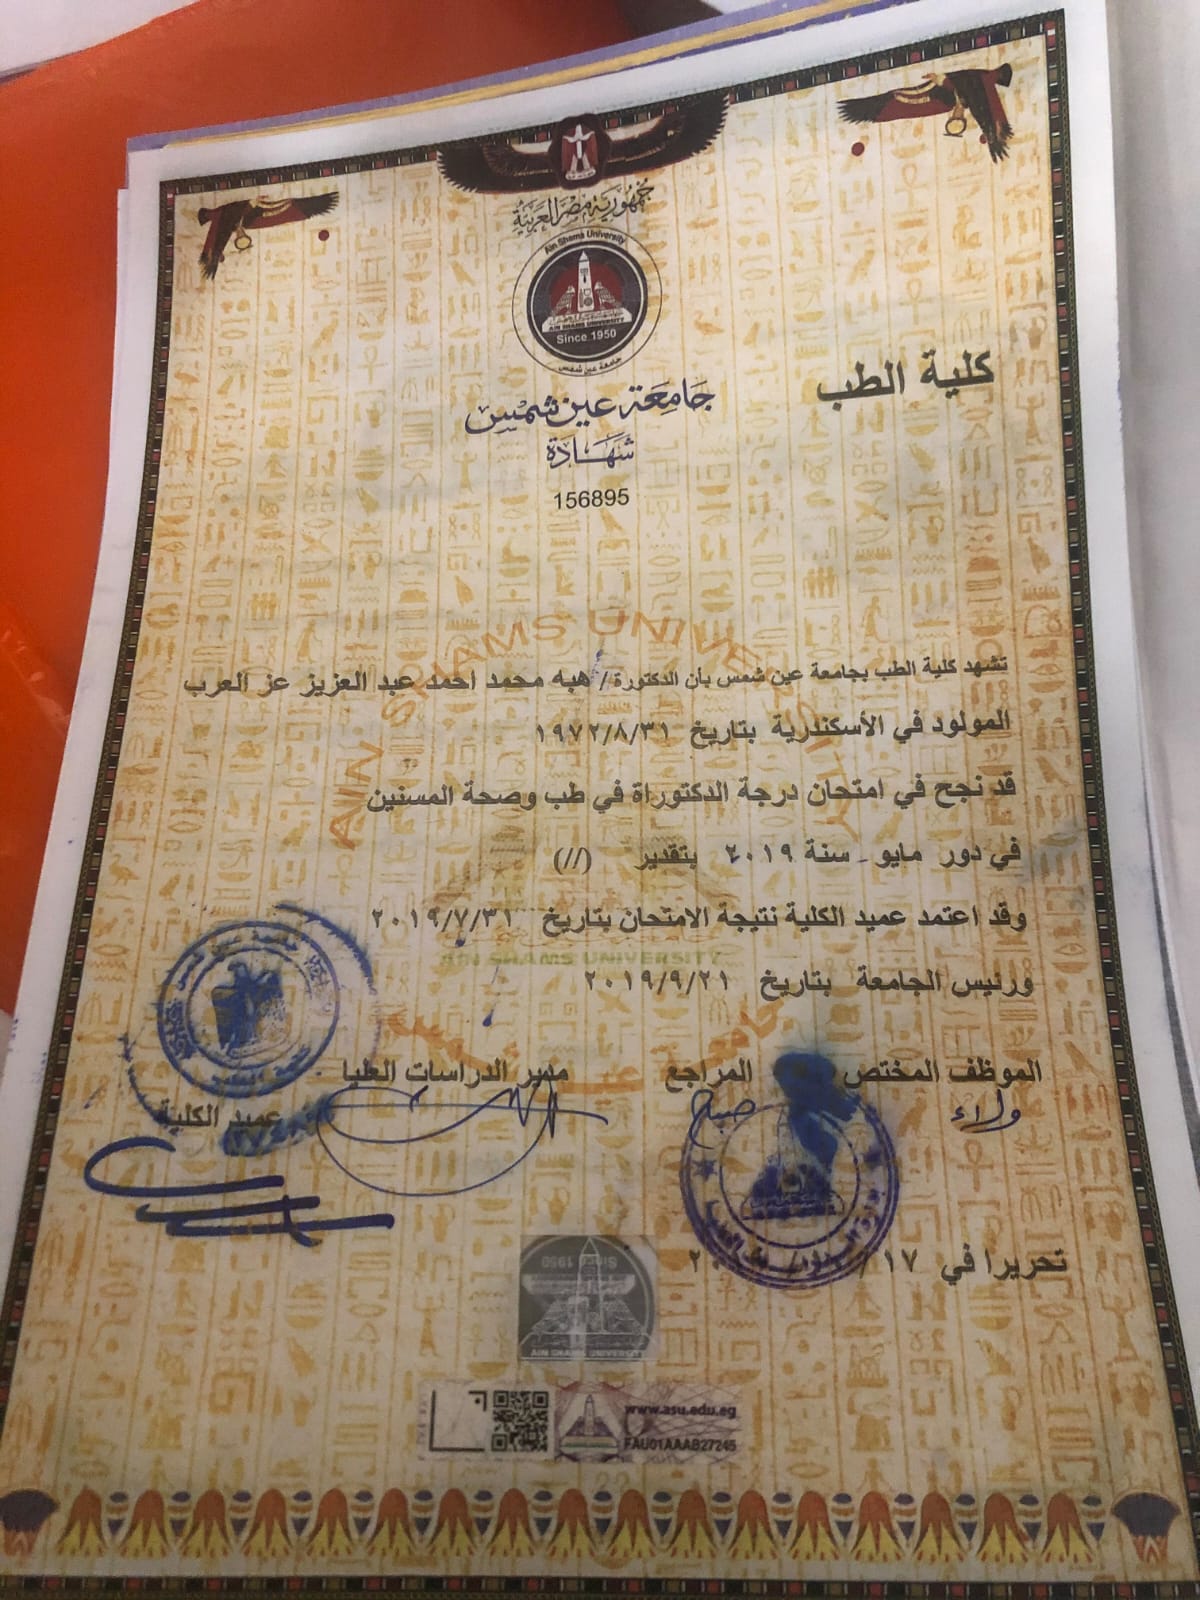 جمهورية مصر العربية
Ain Shams University
AIN SHAMS UNIVERSITY
Since 1950
جامعة عين شمس
كلية الطب
جامعة عين شمس
شهادة
156895
AIN SHAMS UNIVE
تشهد كلية الطب بجامعة عين شمس بأن الدكتورة / هبه محمد احمد عبد العزيز عز العرب
المولود في الأسكندرية بتاريخ ١٩٧٢/٨/٣١
قد نجح في امتحان درجة الدكتوراة في طب وصحة المسنين
في دور مايو سنة ٢٠١٩ بتقدير (//)
وقد اعتمد عميد الكلية نتيجة الامتحان بتاريخ ٢٠١٩/٧/٣١
AIN SHAMS UNIVERSITY
ورئيس الجامعة بتاريخ ٢٠١٩/٩/٢١
الموظف المختص المراجع مدير الدراسات العليا
ولاء صباح
عميد الكلية
تحريرا في ١٧ /
Since 1950
AIN SHAMS UNIVERSITY
www.asu.edu.eg
FAU01AAAB27245